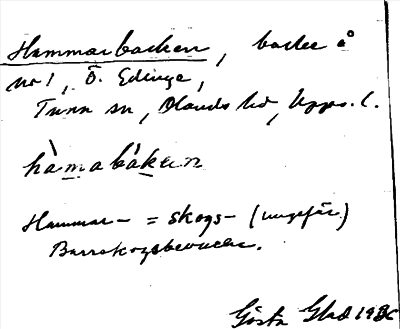 Hammarbacken, backe å
nr 1, Ö. Edinge,
Tuna sn, Olands hd, Upps. l.
hàmabáken
Hammar- = skogs- (ungefär)
Barrskogsbevuxen.
Gösta Glad 19